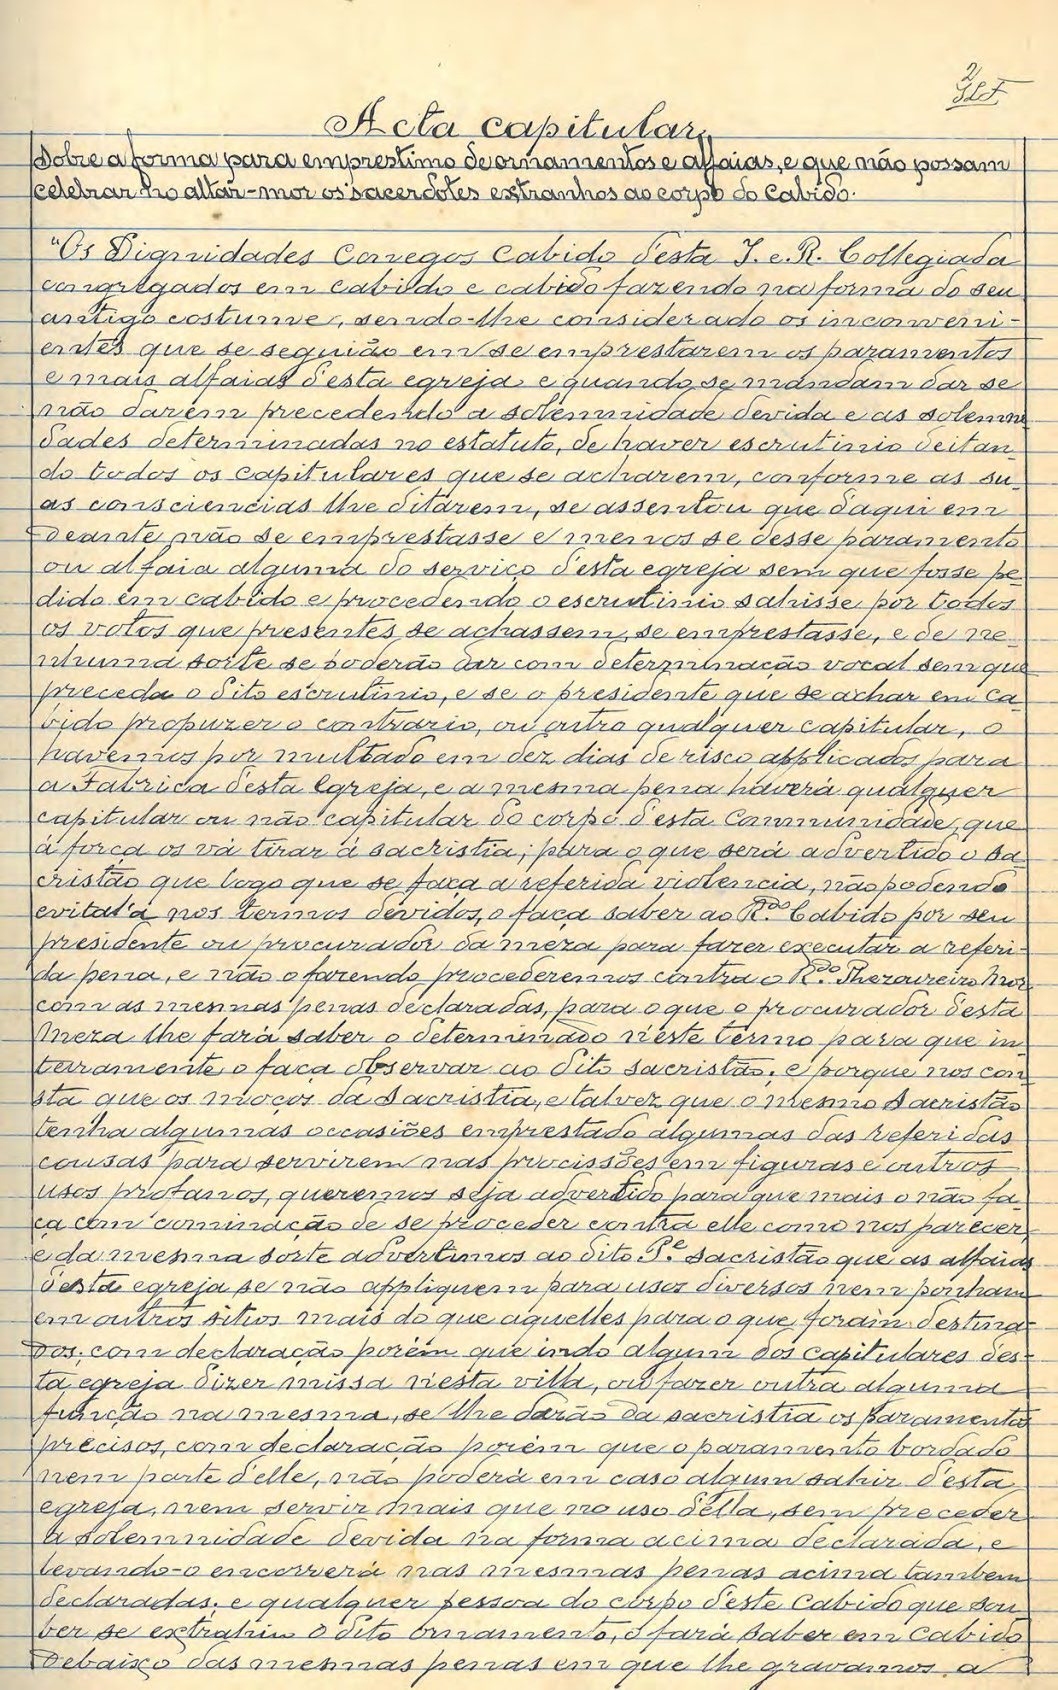 2
Acta capitular,
Sobre a forma para emprestimo de ornamentos e alfaias, e que não possam
celebrar no altar-mor os sacerdotes extranhos ao corpo do Cabido.
"Os Dignidades Conegos Cabido d'esta I. e. R. Collegiada
congregados em cabido e cabido fazendo na forma do seu
antigo costume, sendo-lhe considerado os inconveni-
entes que se seguião em se emprestarem os paramentos
e mais alfaias d'esta egreja e quando se mandam dar se
não darem precedendo a solemnidade devida e as solemni
dades determinadas no estatuto, de haver escrutinio deitan-
do todos os capitulares que se acharem, conforme as su-
as consciencias lhe ditarem, se assentou que d'aqui em
deante não se emprestasse e menos se desse paramento
ou alfaia alguma do serviço d'esta egreja sem que fosse pe-
dido em cabido e procedendo o escrutinio sahisse por todos
os votos que presentes se achassem, se emprestasse, e de ne-
nhuma sorte se poderão dar com determinação vocal sem que
preceda o dito escrutinio, e se o presidente que se achar em ca-
bido propuzer o contrario, ou outro qualquer capitular, o
havemos por multado em dez dias de risco applicados para
a Fabrica d'esta Egreja, e a mesma pena haverá qualquer
capitular ou não capitular do corpo d'esta Communidade, que
á força os vá tirar á sacristia; para o que será advertido o sa-
cristão que logo que se faça a referida violencia, não podendo
evital'a nos termos devidos, o faça saber ao R.do Cabido por seu
presidente ou procurador da meza para fazer executar a referi-
da pena, e não o fazendo procederemos contra o R.do Thezoureiro Mór
com as mesmas penas declaradas, para o que o procurador d'esta
Meza lhe fará saber o determinado n'este termo para que in-
teiramente o faça observar ao dito sacristão; e porque nos con-
sta que os moços da Sacristia, e talvez que o mesmo Sacristão
tenha algumas occasiões emprestado algumas das referidas
cousas para servirem nas procissões em figuras e outros
usos profanos, queremos seja advertido para que mais o não fa-
ça com cominação de se proceder contra elle como nos parecer,
e da mesma sorte advertimos ao dito P.e sacristão que as alfaias
d'esta egreja se não appliquem para usos diversos nem ponham
em outros sitios mais do que aquelles para o que foram destina-
dos; com declaração porém que indo algum dos capitulares des-
ta egreja dizer missa n'esta villa, ou fazer outra alguma
funcção na mesma, se lhe darão da sacristia os paramentos
precisos, com declaração porém que o paramento bordado
nem parte d'elle, não poderá em caso algum sahir d'esta
egreja, nem servir mais que no uso d'ella, sem preceder
a solemnidade devida na forma acima declarada, e
levando-o encorrerá nas mesmas penas acima tambem
declaradas; e qualquer pessoa do corpo d'este Cabido que sou-
ber se extrahiu o dito ornamento, o fará saber em Cabido
debaixo das mesmas penas em que lhe gravamos a